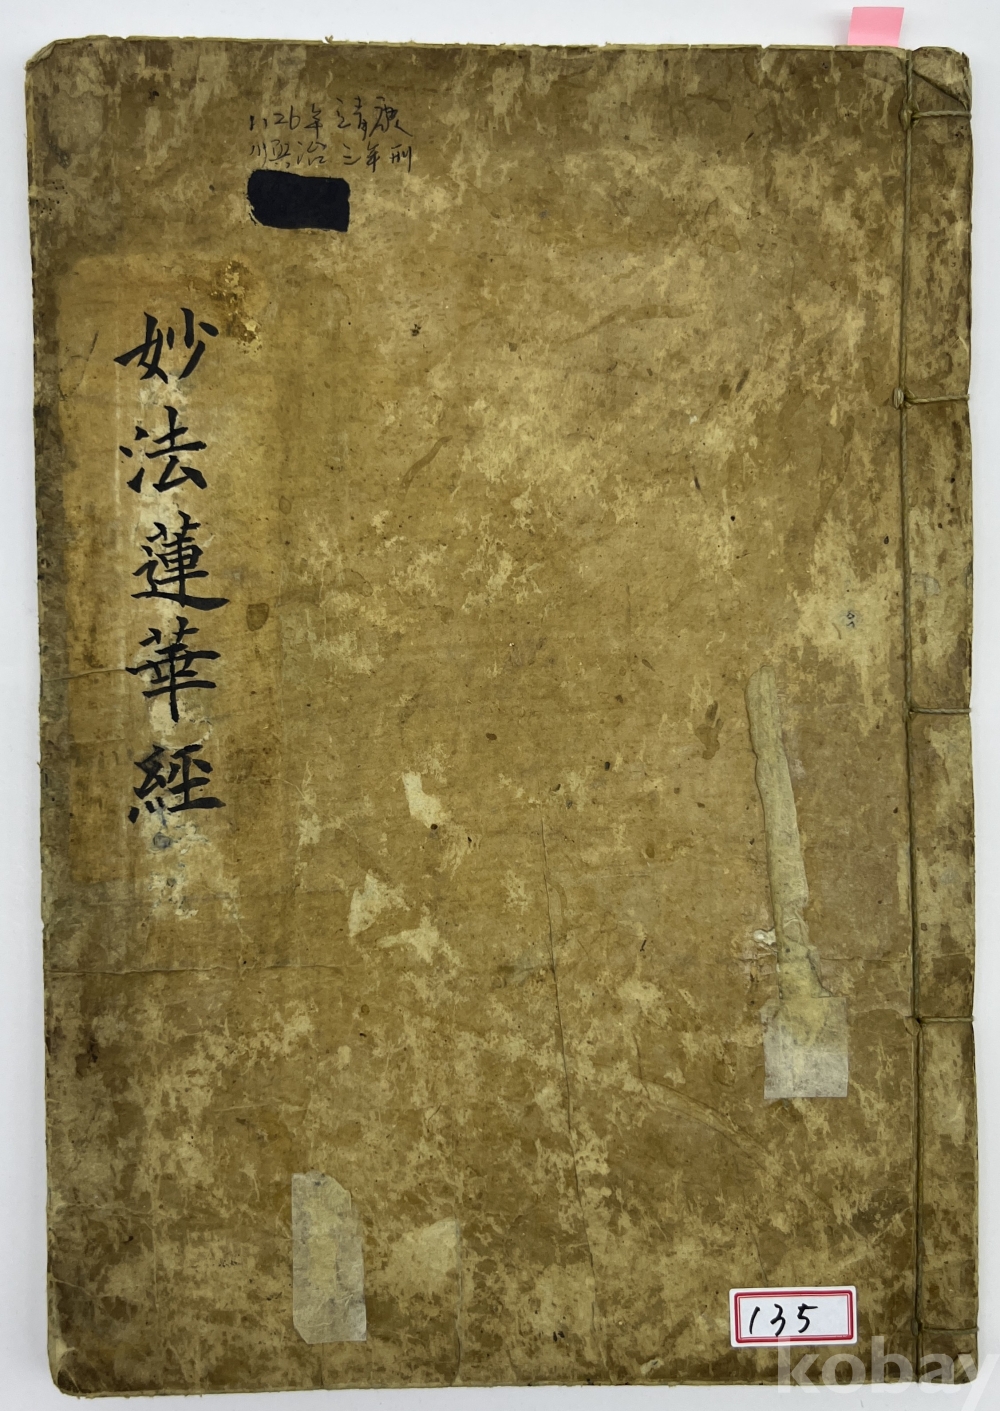 1126年 靖康
順治 三年刊
妙法蓮華經
135
kobay